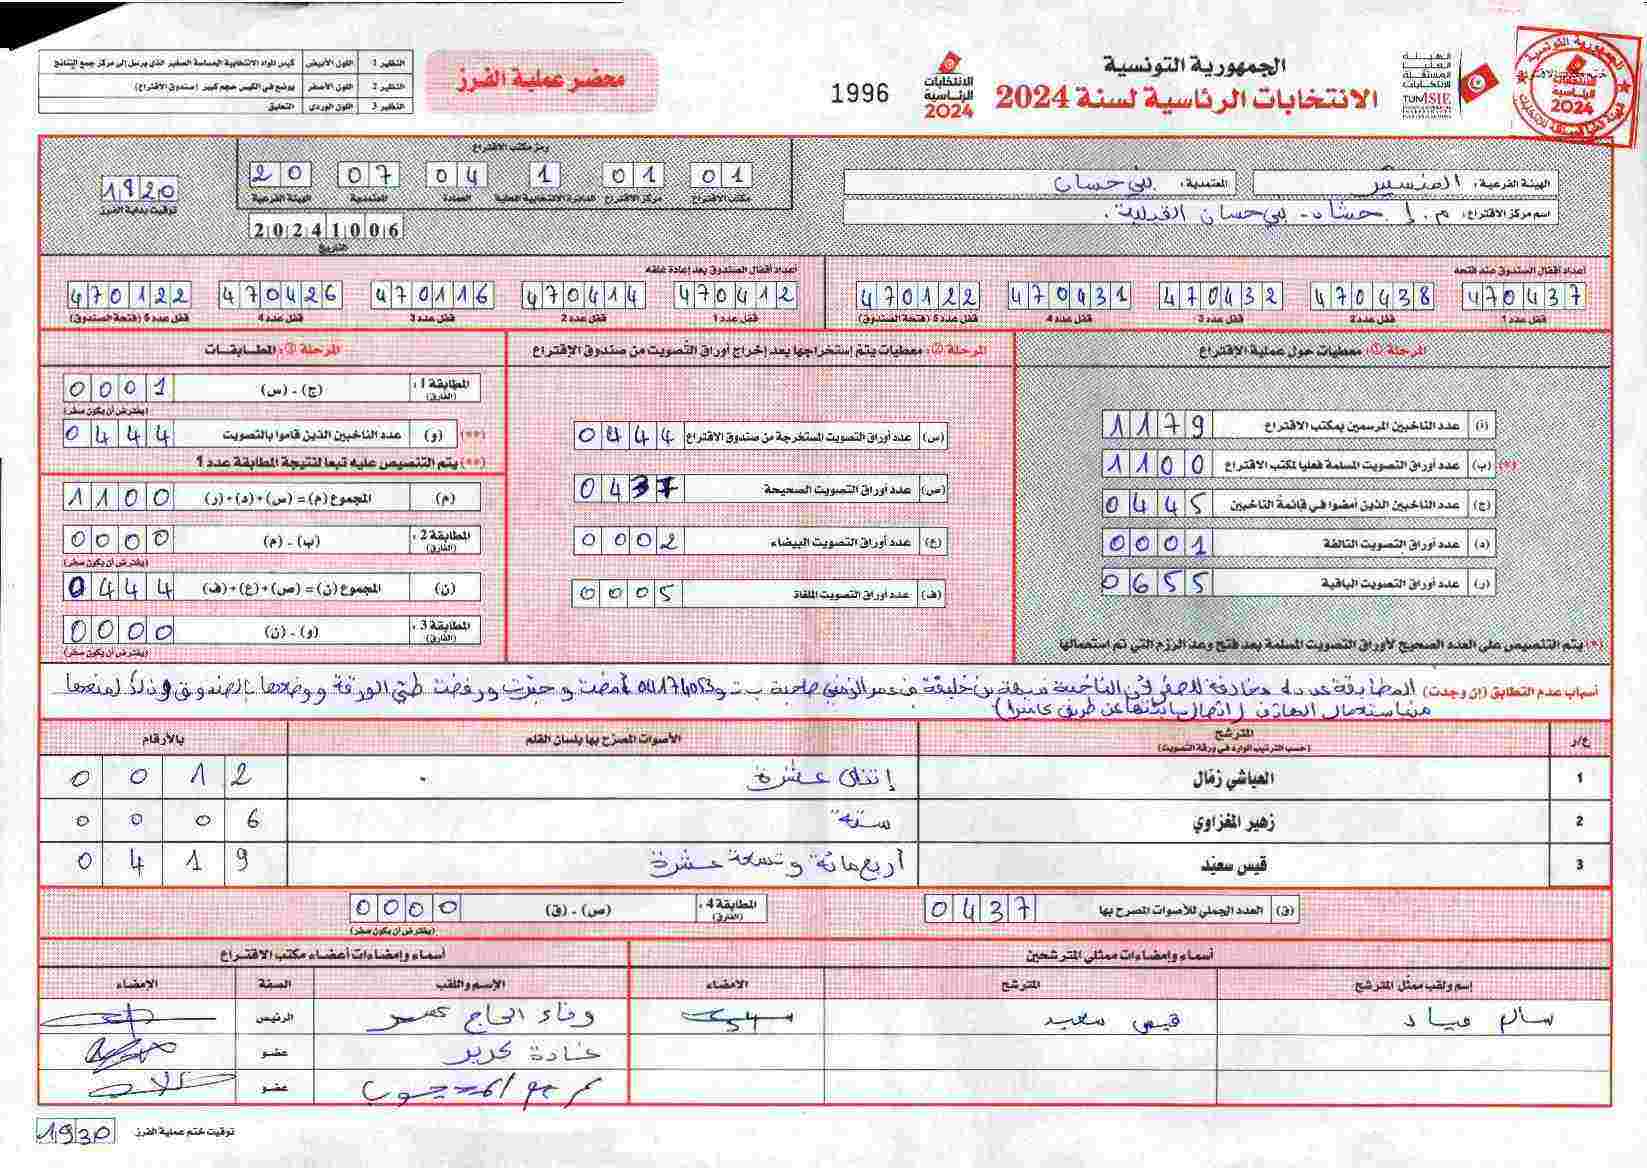 الجمهورية التونسية
الانتخابات الرئاسية لسنة 2024
الهيئة العليا المستقلة للانتخابات
TUNISIE
الانتخابات الرئاسية 2024
1996
محضر عملية الفرز
النظير 1 اللون الأبيض كيس المواد الانتخابية الحساسة الصغير الذي يرسل إلى مركز جمع النتائج
النظير 2 اللون الأصفر يوضع في الكيس حجم كبير (صندوق الاقتراع)
النظير 3 اللون الوردي التعليق
الهيئة الفرعية: المنستير المعتمدية: بني حسان
اسم مركز الاقتراع: م. إ حشاد - بني حسان القبلية.
رمز مكتب الاقتراع
01 01 1 04 07 20
مكتب الاقتراع مركز الاقتراع الدائرة الانتخابية المحلية العمادة المعتمدية الهيئة الفرعية
20241006
التاريخ
1820
توقيت بداية الفرز
أعداد أقفال الصندوق عند فتحه
470437 470438 470432 470431 470122
قفل عدد 1 قفل عدد 2 قفل عدد 3 قفل عدد 4 قفل عدد 5 (فتحة الصندوق)
أعداد أقفال الصندوق بعد إعادة غلقه
470412 470414 470116 470426 470122
قفل عدد 1 قفل عدد 2 قفل عدد 3 قفل عدد 4 قفل عدد 5 (فتحة الصندوق)
المرحلة 1: معطيات حول عملية الاقتراع
(أ) عدد الناخبين المرسمين بمكتب الاقتراع 1179
(*) (ب) عدد أوراق التصويت المسلمة فعليا لمكتب الاقتراع 1100
(ج) عدد الناخبين الذين أمضوا في قائمة الناخبين 0445
(د) عدد أوراق التصويت التالفة 0001
(ر) عدد أوراق التصويت الباقية 0655
(*) يتم التنصيص على العدد الصحيح لأوراق التصويت المسلمة بعد فتح وعد الرزم التي تم استعمالها
المرحلة 2: معطيات يتم إستخراجها بعد إخراج أوراق التصويت من صندوق الاقتراع
(س) عدد أوراق التصويت المستخرجة من صندوق الاقتراع 0444
(ص) عدد أوراق التصويت الصحيحة 0437
(ع) عدد أوراق التصويت البيضاء 0002
(ف) عدد أوراق التصويت الملغاة 0005
المرحلة 3: المطابقات
المطابقة 1: (الفارق) (ج) - (س) 0001
(يفترض أن يكون صفر)
(**) (و) عدد الناخبين الذين قاموا بالتصويت 0444
(**) يتم التنصيص عليه تبعا لنتيجة المطابقة عدد 1
(م) المجموع (م) = (س) + (د) + (ر) 1100
المطابقة 2: (الفارق) (ب) - (م) 0000
(يفترض أن يكون صفر)
(ن) المجموع (ن) = (ص) + (ع) + (ف) 0444
المطابقة 3: (الفارق) (و) - (ن) 0000
(يفترض أن يكون صفر)
أسباب عدم التطابق (إن وجدت) المطابقة عدد 1 مخالفة للصفر لأن الناخبة
ع/ر المترشح الأصوات المصرح بها بلسان القلم بالأرقام
(حسب الترتيب الوارد في ورقة التصويت)
1 العياشي زمّال إثنى عشرة 0012
2 زهير المغزاوي ستة 0006
3 قيس سعيّد أربع مائة وتسعة عشرة 0419
(ق) العدد الجملي للأصوات المصرح بها 0437
المطابقة 4: (الفارق) (ص) - (ق) 0000
(يفترض أن يكون صفر)
أسماء وإمضاءات ممثلي المترشحين
إسم ولقب ممثل المترشح المترشح الامضاء
سالم عياد قيس سعيد
أسماء وإمضاءات أعضاء مكتب الاقتراع
الإسم واللقب الصفة الإمضاء
وفاء الحاج عمر الرئيس
غادة كدير عضو
عضو
توقيت ختم عملية الفرز 1930